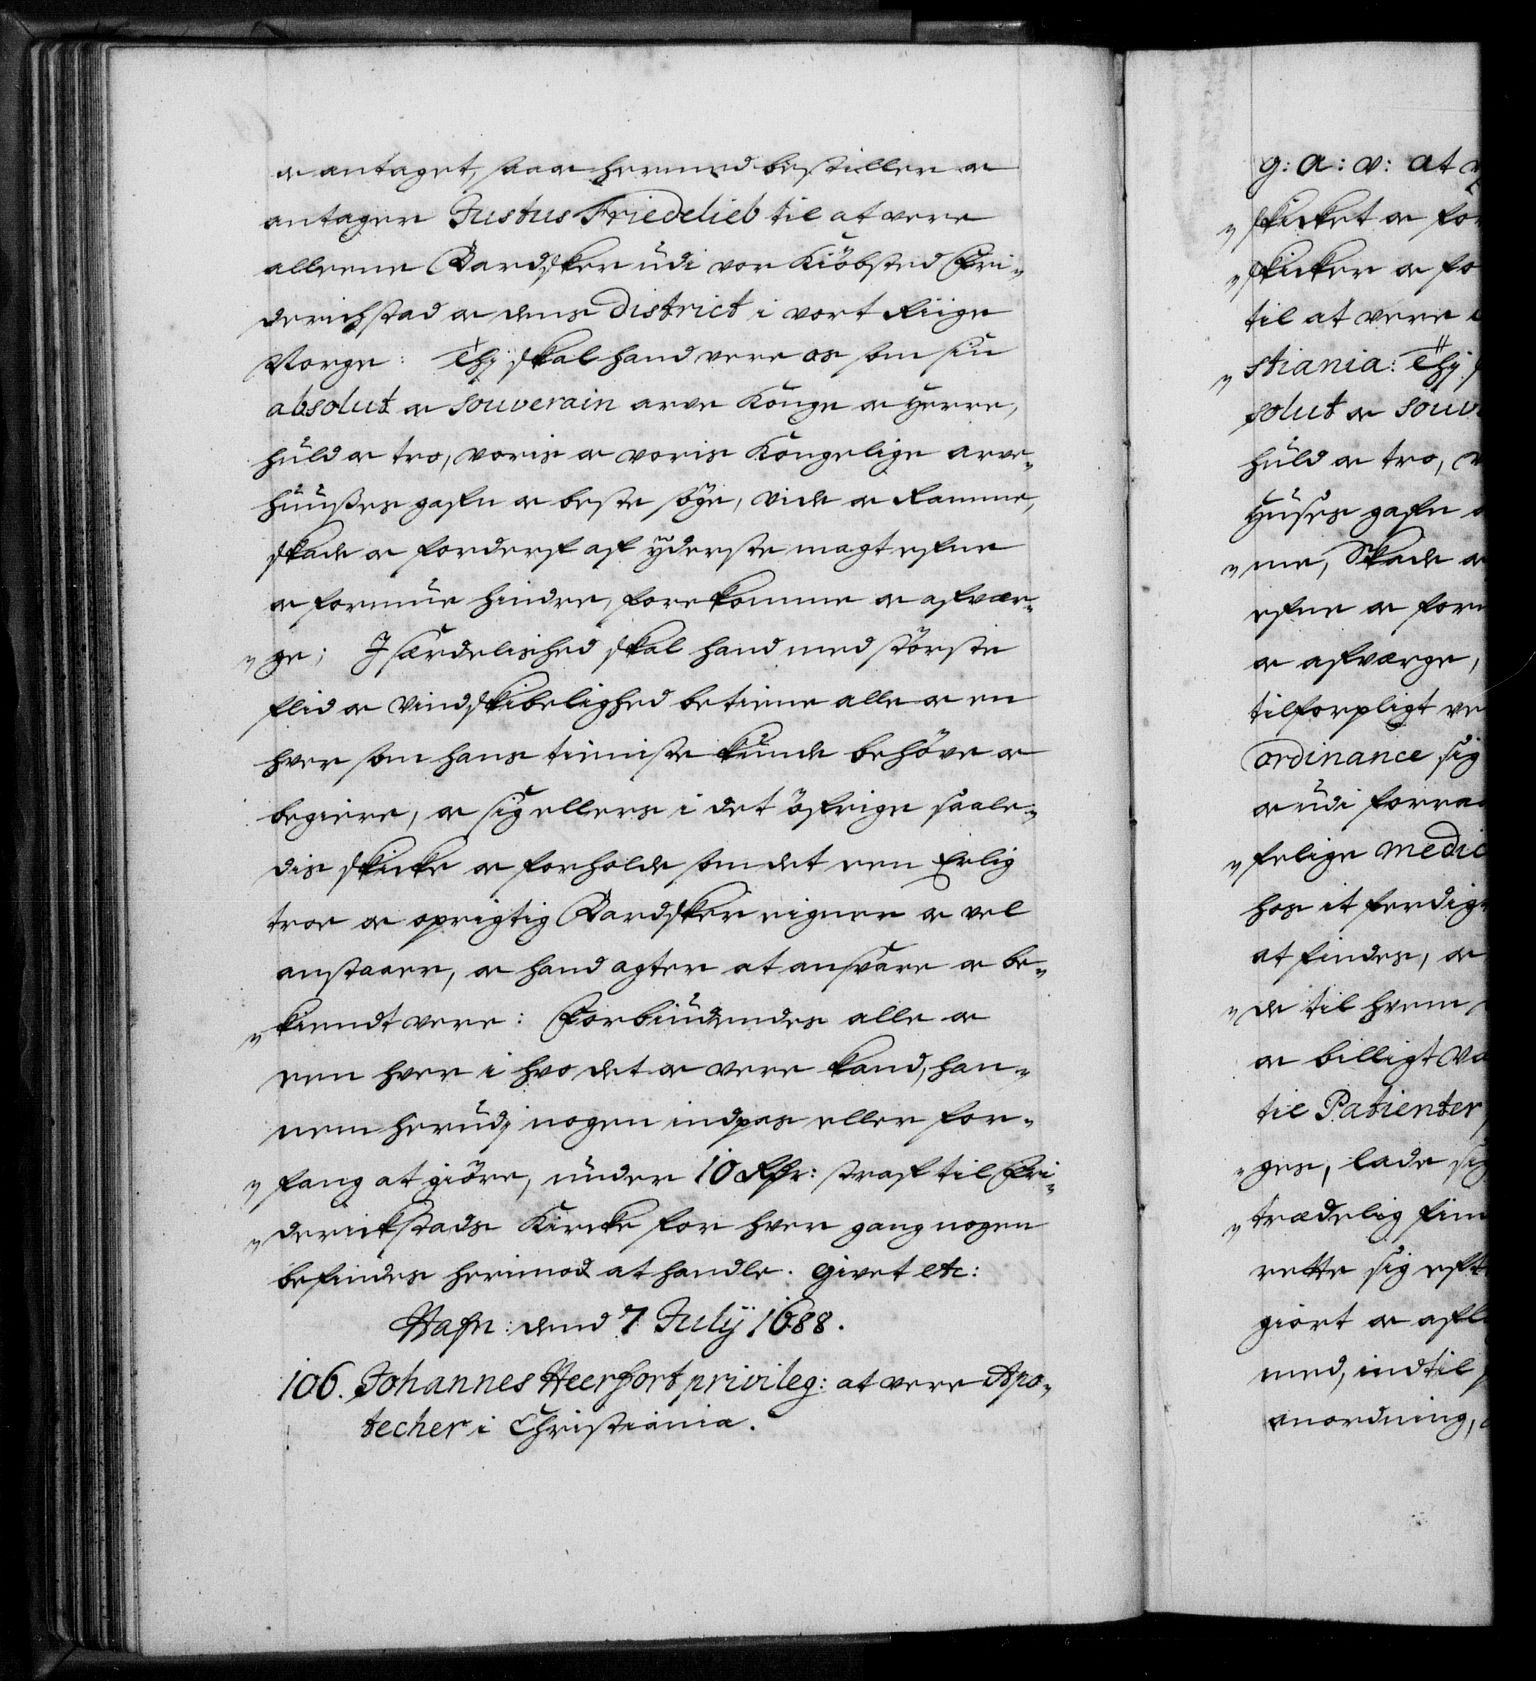 oc antaget, saa oc hermed bestiller oc
antager Justus Friedelieb til at vere
alleene Bardskier udi vor Kiöbsted Fri„
derichstad oc dens District i vort Riige
Norge: Thj skal hand vere os som sin
absolut oc souverain arve Konge oc Herre,
huld oc tro, voris oc voris Kongelige arve„
huußes gafn oc beste söge, vide oc Ramme,
skade oc forderf af yderste magt efne
oc formue hindre, forekomme oc afvær„
„ge; Isærdelished skal hand med störste
flid oc Vindskibelighed betiene alle oc en
hver som hans tieniste kunde behöve oc
begiere, oc sig ellers i det öfrige saale„
dis skicke oc forholde som det een Erlig
troe oc oprigtig Bardskier eigner oc vel
anstaaer, oc hand agter at ansvare oc be„
„kiendt vere: Forbiudendes alle oc
een hver i hvo det oc vere kand, han„
nem herudj nogen indpas eller for„
„fang at giöre, under 10 Rdr: straf til Fri„
„derickstads Kircke for hver gang nogen
befindes herimod at handle. Givet etc:
Hafn: dend 7 Julij 1688.
106. Johannes Heerfort privileg: at vere Apo„
techer i Christiania.
g: a: v: at
„skicket oc for
„skicker oc fo
til at vere
„stiania: Thj
solut oc souv
huld oc tro,
Huses gafn
„me, Skade oc
efne oc for
oc afværge,
tilforpligt ve
ordinance sig
oc udi forraa
„felige medic
hos it ferdig
at findes, oc
„de til hvem
oc billigt va
til Patienter
„ges, lade sig
„trædelig fin
rette sig eft
giort oc afl
med, indtil
anordning,